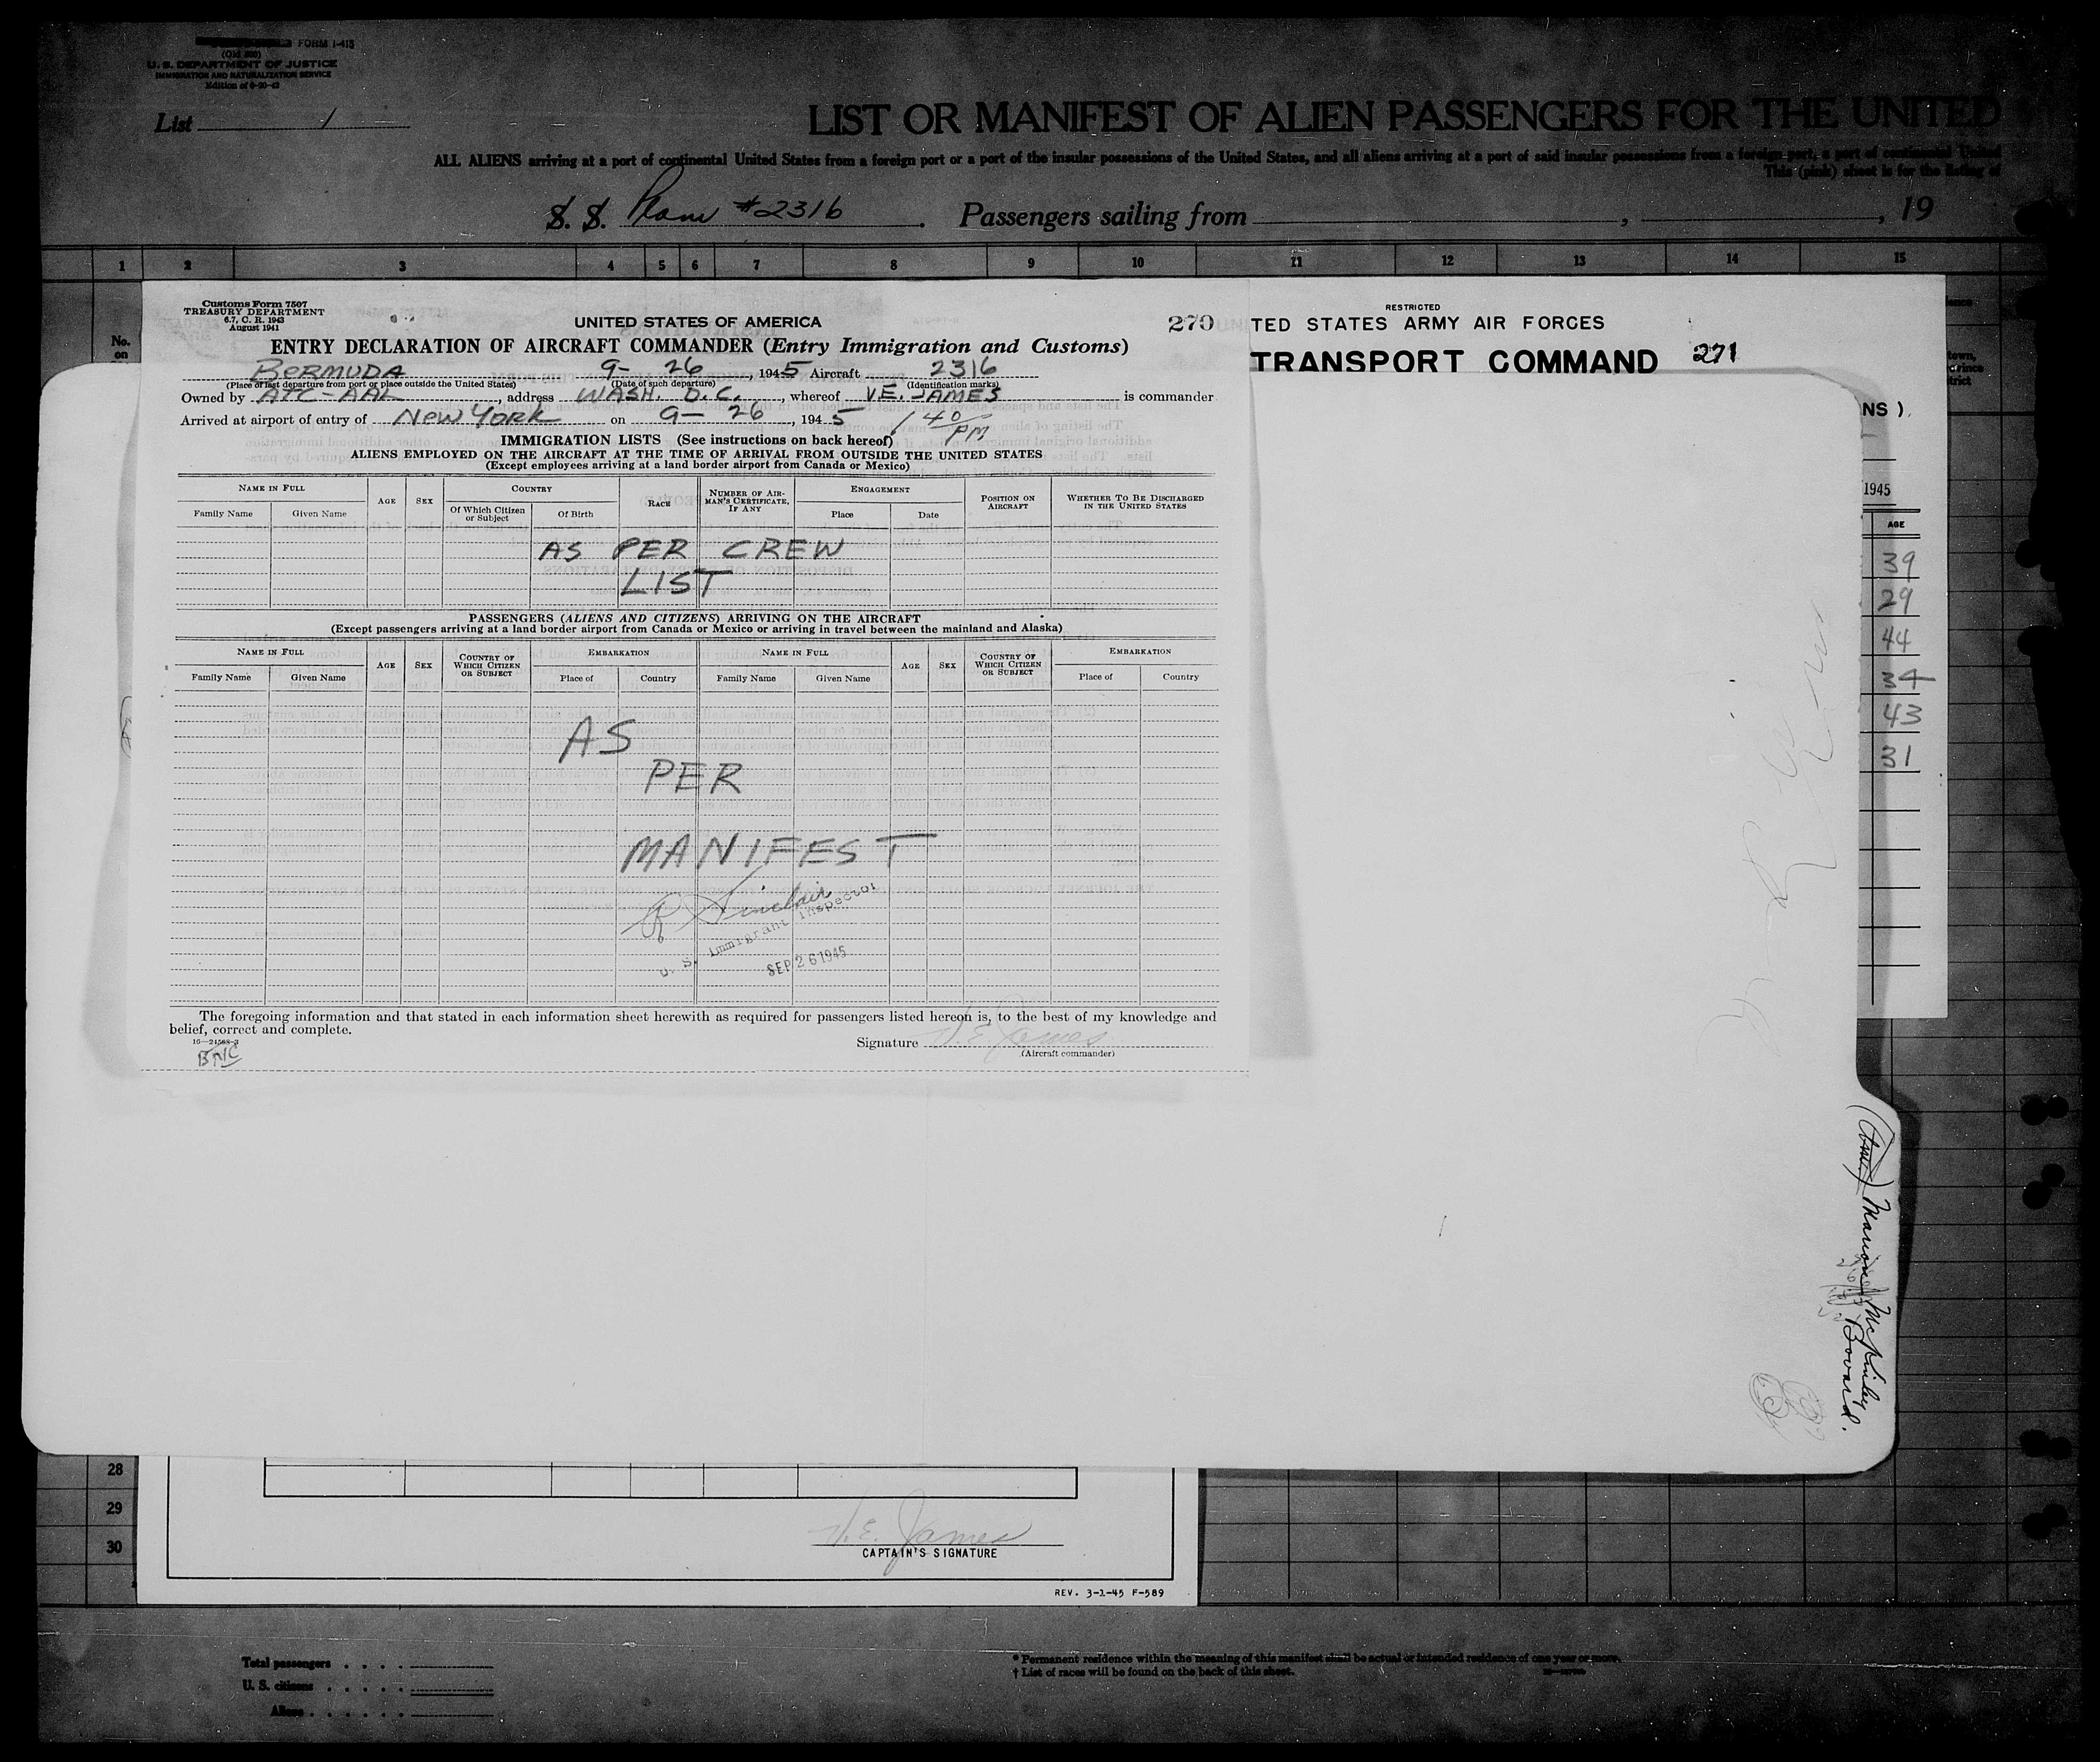 FORM I-415
(Old 500)
U. S. DEPARTMENT OF JUSTICE
IMMIGRATION AND NATURALIZATION SERVICE
List 1
LIST OR MANIFEST OF ALIEN PASSENGERS FOR THE UNITED
ALL ALIENS arriving at a port of continental United States from a foreign port or a port of the insular possessions of the United States, and all aliens arriving at a port of said insular possessions from a foreign port, a port of continental United
This (pink) sheet is for the listing of
S. S. Plane #2316. Passengers sailing from , , 19
1 2 3 4 5 6 7 8 9 10 11 12 13 14 15
No. on
Customs Form 7507
TREASURY DEPARTMENT
6.7, C. R. 1943
August 1941
UNITED STATES OF AMERICA
270
ENTRY DECLARATION OF AIRCRAFT COMMANDER (Entry Immigration and Customs)
BERMUDA 9- 26, 1945 Aircraft 2316
(Place of last departure from port or place outside the United States) (Date of such departure) (Identification marks)
Owned by ATC-AAL, address WASH. D.C., whereof V.E. JAMES is commander
Arrived at airport of entry of NEW YORK on 9- 26, 1945 1 40/PM
IMMIGRATION LISTS (See instructions on back hereof)
ALIENS EMPLOYED ON THE AIRCRAFT AT THE TIME OF ARRIVAL FROM OUTSIDE THE UNITED STATES
(Except employees arriving at a land border airport from Canada or Mexico)
NAME IN FULL AGE SEX COUNTRY RACE NUMBER OF AIRMAN'S CERTIFICATE, IF ANY ENGAGEMENT POSITION ON AIRCRAFT WHETHER TO BE DISCHARGED IN THE UNITED STATES
Family Name Given Name Of Which Citizen or Subject Of Birth Place Date
AS PER CREW
LIST
PASSENGERS (ALIENS AND CITIZENS) ARRIVING ON THE AIRCRAFT
(Except passengers arriving at a land border airport from Canada or Mexico or arriving in travel between the mainland and Alaska)
NAME IN FULL AGE SEX COUNTRY OF WHICH CITIZEN OR SUBJECT EMBARKATION NAME IN FULL AGE SEX COUNTRY OF WHICH CITIZEN OR SUBJECT EMBARKATION
Family Name Given Name Place of Country Family Name Given Name Place of Country
AS
PER
MANIFEST
R Sinclair
U. S. Immigrant Inspector
SEP 26 1945
The foregoing information and that stated in each information sheet herewith as required for passengers listed hereon is, to the best of my knowledge and
belief, correct and complete.
Signature V. E. James
(Aircraft commander)
BNC
RESTRICTED
TED STATES ARMY AIR FORCES
TRANSPORT COMMAND 271
NS )
1945
AGE
39
29
44
34
43
31
Marion McKinley
Bovard.
28
29
30
V. E. James
CAPTAIN'S SIGNATURE
REV. 3-1-45 F-589
Total passengers
U. S. citizens
Aliens
* Permanent residence within the meaning of this manifest shall be actual or intended residence of one year or more.
† List of races will be found on the back of this sheet.